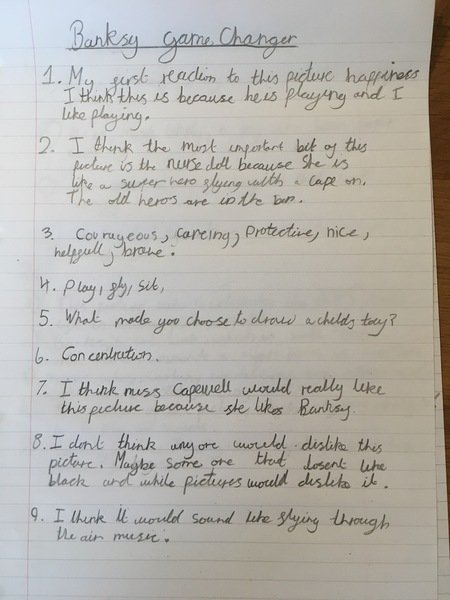 Banksy Game Changer
1. My first reaction to this picture happiness
I think this is because he is playing and I
like playing.
2. I think the most important bit of this
picture is the nurse doll because she is
like a super hero flying with a cape on.
The old heros are in the bin.
3. Courageous, careing, Protective, nice,
helpfull, brave.
4. Play, fly, sit,
5. What made you choose to draw a childs toy?
6. Concentration.
7. I think miss Capewell would really like
this picture because she likes Banksy.
8. I dont think anyone would dislike this
picture. Maybe some one that dosent like
black and while pictures would dislike it.
9. I think It would sound like flying through
the air music.